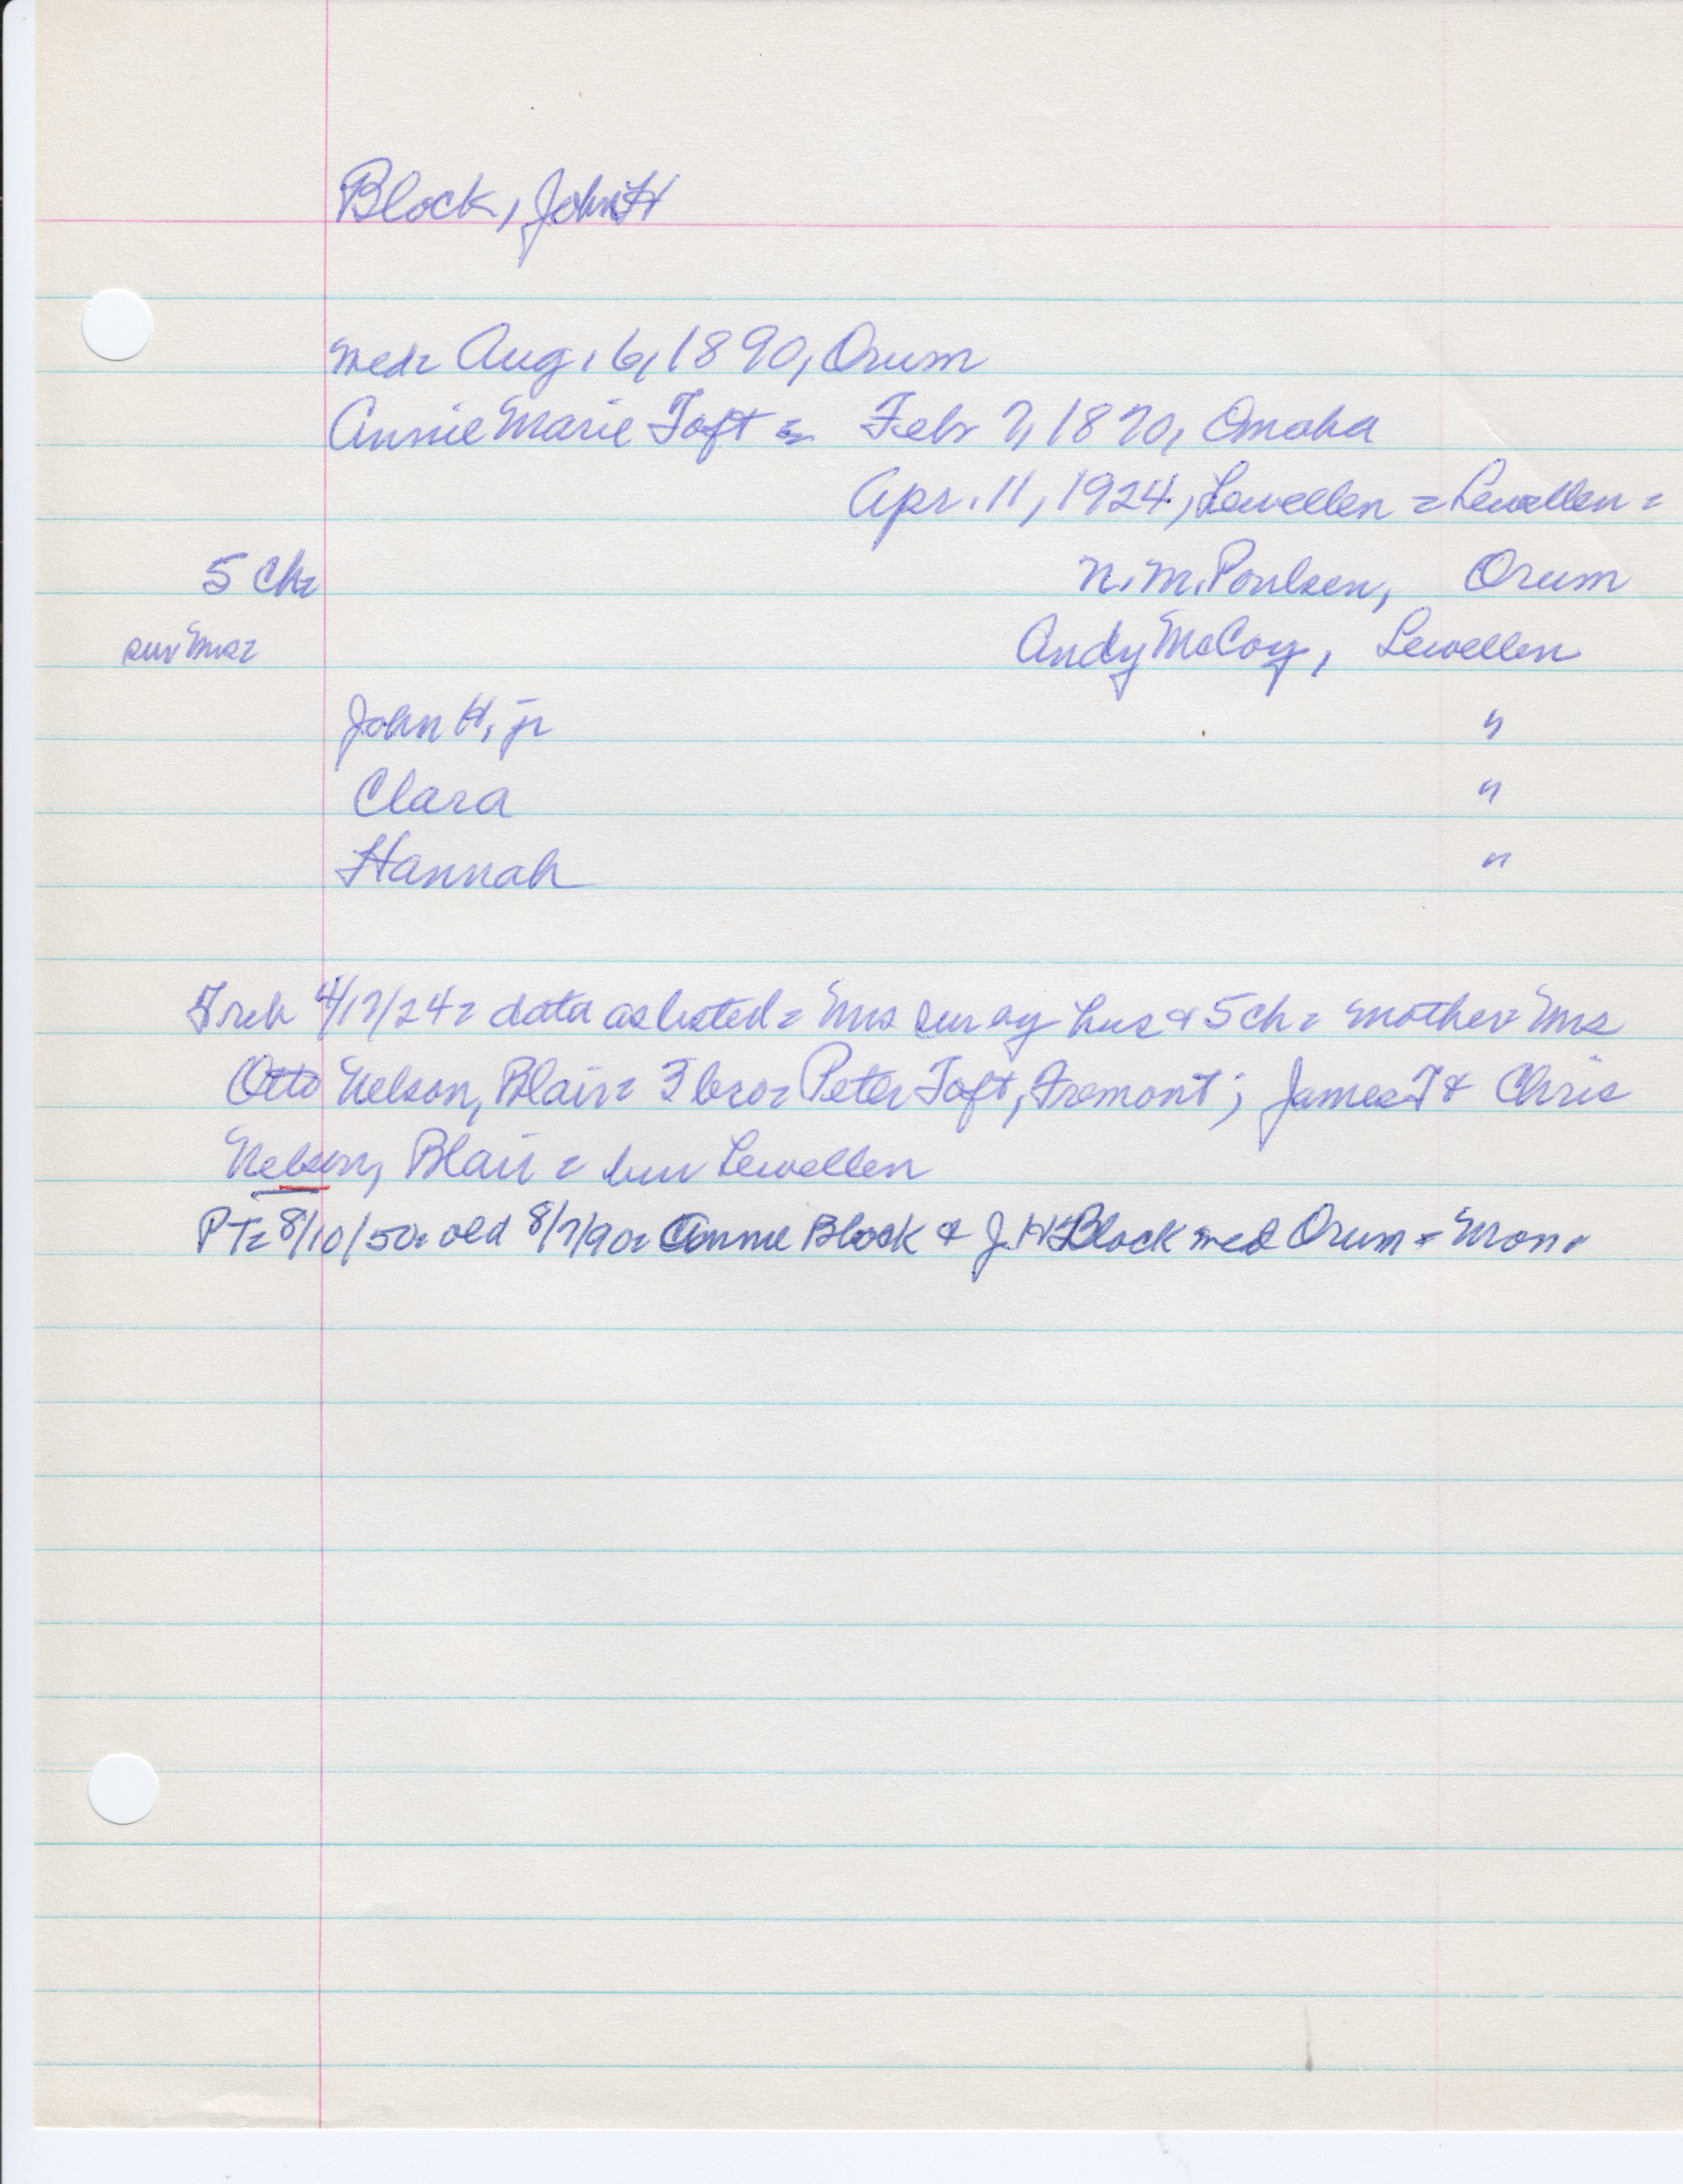 Block, John H
med= Aug. 6, 1890, Orum
Annie Marie Toft = Feb 7, 1870, Omaha
Apr. 11, 1924, Lewellen = Lewellen =
5 Ch= N. M. Poulsen, Orum
sur Mrs= Andy McCoy, Lewellen
John H, jr "
Clara "
Hannah "
4/17/24= data as listed = Mrs sur by hus & 5 ch = mother= Mrs
Otto Nelson, Blair= 3 bro= Peter Toft, Fremont; James T & Chris
Nelson, Blair = bur Lewellen
PT= 8/10/50= old 8/7/90= Annie Block & J. H. Block med Orum = Mon.